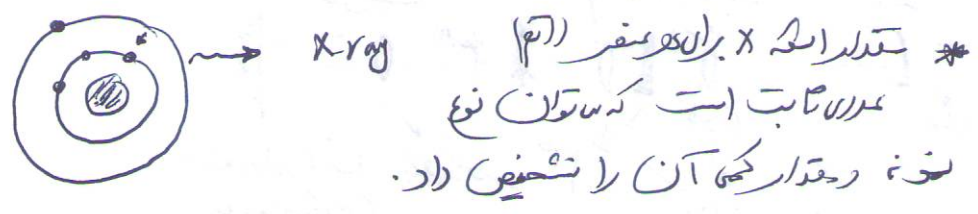 * مقدار اشعه X برای هر عنصر (اتم) X-ray
عددی ثابت است که می‌توان نوع
نمونه و مقدار کمی آن را تشخیص داد.